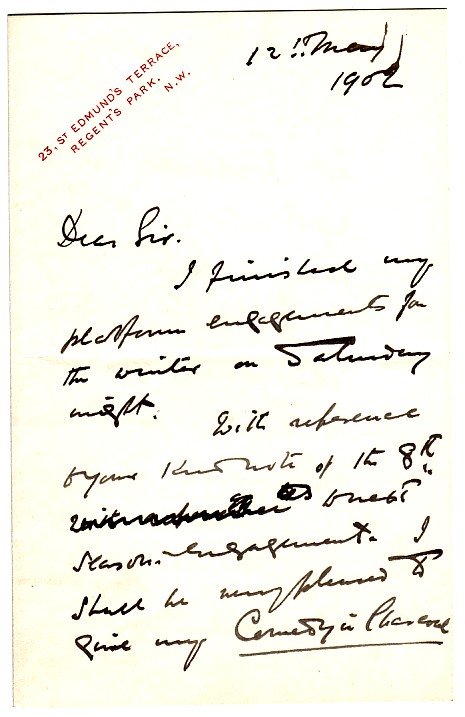 23, ST EDMUND'S TERRACE,
REGENT'S PARK.
N.W.
12th May
1902
Dear Sir.
I finished my
platform engagements for
the winter on Saturday
night.
With reference
to your kind note of the 8th
next
Season's engagement. I
shall be very pleased to
give my Comedy in Charcoal